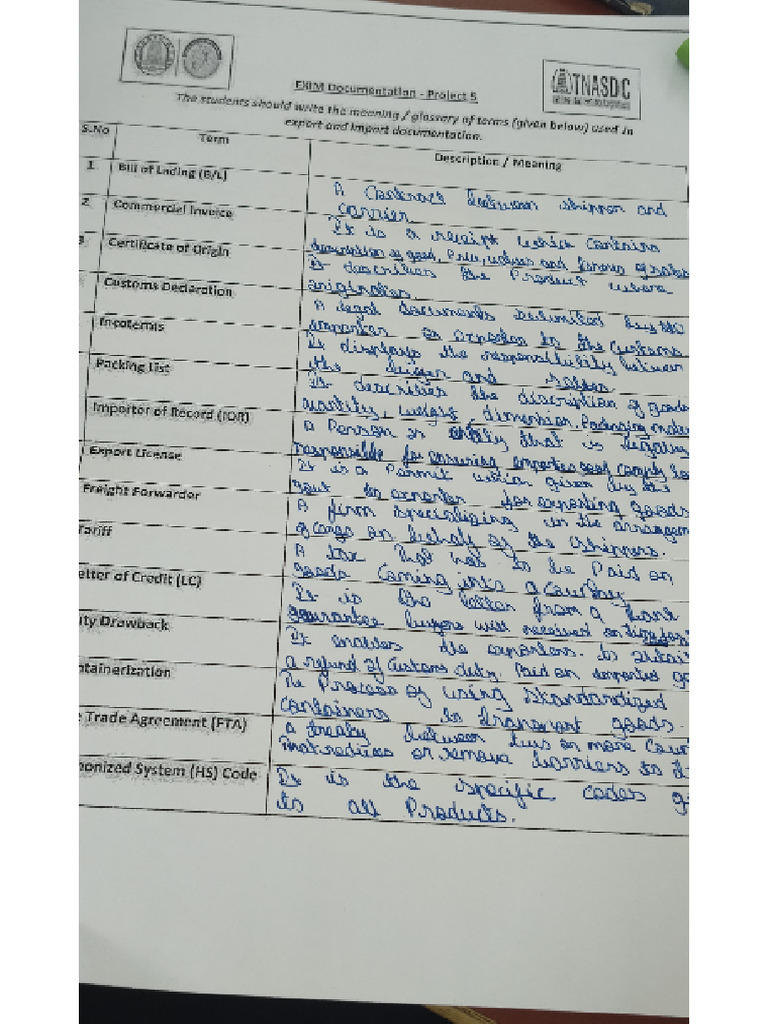 TNASDC
EXIM Documentation - Project 5
The students should write the meaning / glossary of terms (given below) used in
export and import documentation.
S.No
Term
Description / Meaning
1
Bill of Lading (B/L)
A Contract between shipper and
carrier.
2
Commercial Invoice
It is a receipt which contains
description of good, Price, values and of sales
3
Certificate of Origin
It describes the Product where
originates.
Customs Declaration
A legal documents submitted by the
importer or exporter to the Customs
Incoterms
It displays the responsibility between
the buyer and seller
Packing List
It describes the discription of goods
quantity, weight, dimension, Packaging
Importer of Record (IOR)
a Person or entity that is legally
responsible for ensuring imported comply
Export License
It is a Permit which given by the
govt to exporter for exporting goods
Freight Forwarder
A firm specializing in the arrangem
of cargo on behalf of the shippers.
Tariff
A tax that has to be Paid on
goods Coming into a Country
etter of Credit (LC)
It is the letter from a bank
guarantee buyers will received on time
ty Drawback
It enables the exporters to
a refund of Customs duty Paid on imported go
ntainerization
The Process of using Standardized
containers to transport goods.
e Trade Agreement (FTA)
a treaty between two or more Coun
that reduces or remove barriers to t
monized System (HS) Code
It is the specific codes g
to all Products.